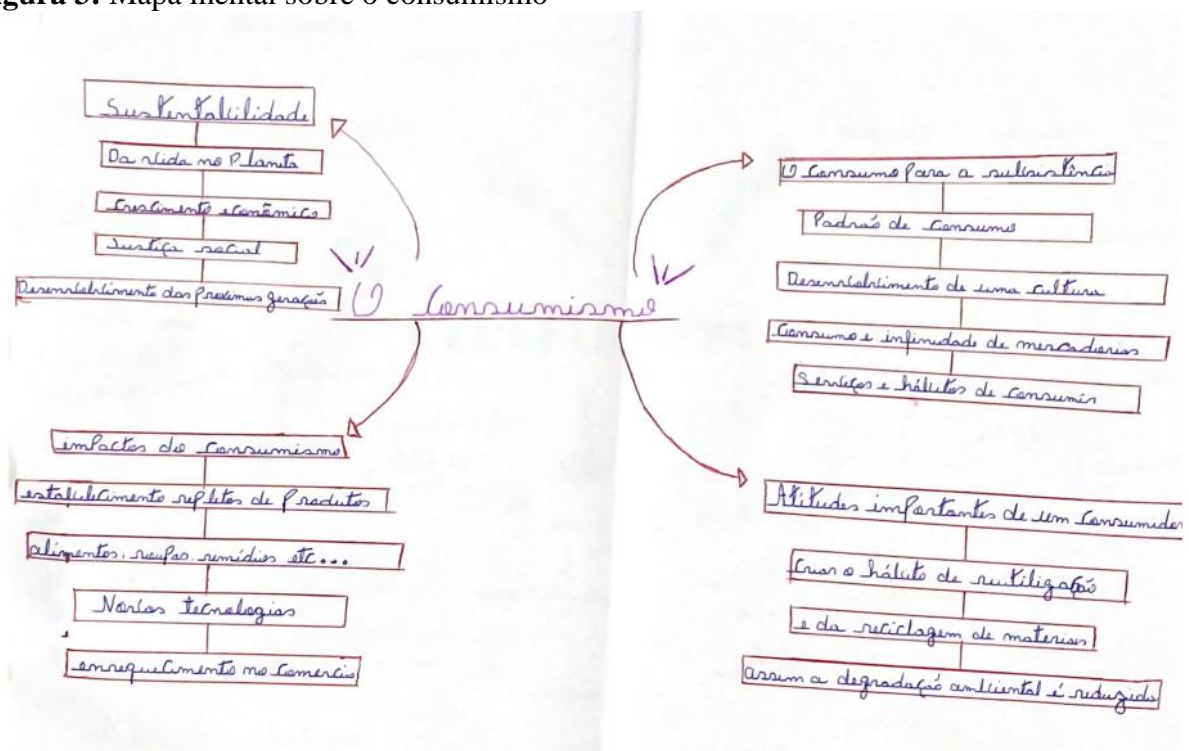 gura 3: Mapa mental sobre o consumismo
Sustentabilidade
Da vida no Planita
Crescimento econômico
Justiça social
Desenvolvimento das proximas gerações
O Consumismo
O Consumo Para a subsistência
Padrão de Consumo
Desenvolvimento de uma cultura
Consumo e infinidade de mercadorias
Serviços e hábitos de consumir
impactos do Consumismo
estabelecimento repletos de Produtos
alimentos, roupas, remédios etc...
Novas tecnologias
enrequecimento no Comercio
Atitudes importantes de um Consumidor
Criar o hábito de reutilização
e da reciclagem de materiais
assim a degradação ambiental é reduzida